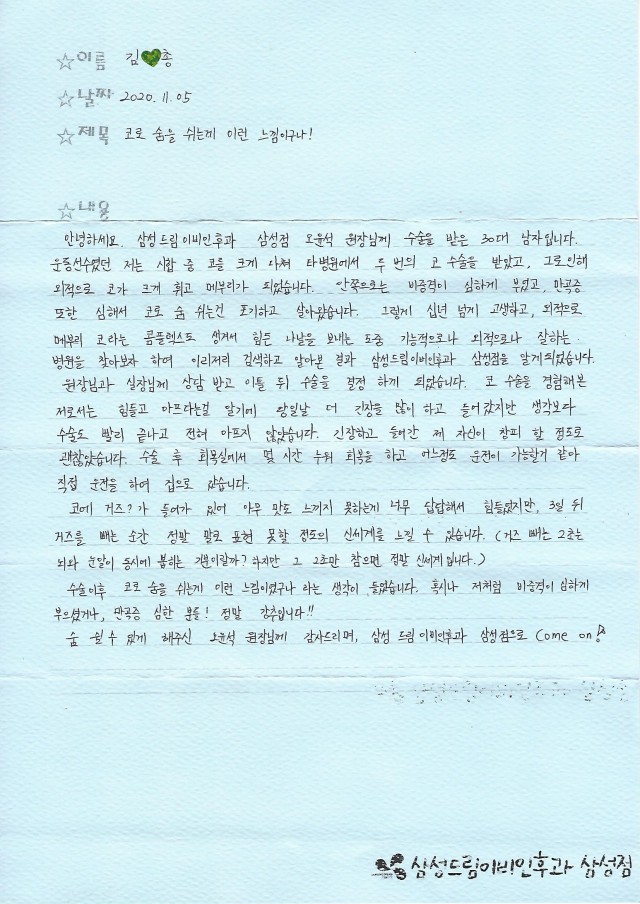 ☆이름 김💚총
☆날짜 2020.11.05
☆제목 코로 숨을 쉬는게 이런 느낌이구나!
☆내용
안녕하세요. 삼성드림이비인후과 삼성점 오윤석 원장님께 수술을 받은 30대 남자입니다.
운동선수였던 저는 시합 중 코를 크게 다쳐 타병원에서 두 번의 코 수술을 받았고, 그로인해
외적으로 코가 크게 휘고 메부리가 되었습니다. 안쪽으로는 비중격이 심하게 부었고, 만곡증
또한 심해서 코로 숨 쉬는건 포기하고 살아왔습니다. 그렇게 십년 넘게 고생하고, 외적으로
메부리 코라는 콤플렉스도 생겨서 힘든 나날을 보내는 도중 기능적으로나 외적으로나 잘하는
병원을 찾아보자 하여 이리저리 검색하고 알아본 결과 삼성드림이비인후과 삼성점을 알게되었습니다.
원장님과 실장님께 상담 받고 이틀 뒤 수술을 결정 하게 되었습니다. 코 수술을 경험해본
저로서는 힘들고 아프다는걸 알기에 당일날 더 긴장을 많이 하고 들어갔지만 생각보다
수술도 빨리 끝나고 전혀 아프지 않았습니다. 긴장하고 들어간 제 자신이 창피 할 정도로
괜찮았습니다. 수술 후 회복실에서 몇 시간 누워 회복을 하고 어느정도 운전이 가능할거 같아
직접 운전을 하여 집으로 갔습니다.
코에 거즈? 가 들어가 있어 아무 맛도 느끼지 못하는게 너무 답답해서 힘들었지만, 3일 뒤
거즈를 빼는 순간 정말 말로 표현 못할 정도의 신세계를 느낄 수 있습니다. (거즈 빼는 2초는
뇌와 눈알이 동시에 뽑히는 기분이랄까? 하지만 그 2초만 참으면 정말 신세계입니다.)
수술이후 코로 숨을 쉬는게 이런 느낌이었구나 라는 생각이 들었습니다. 혹시나 저처럼 비중격이 심하게
부으셨거나, 만곡증 심한 분들! 정말 강추입니다!!
숨 쉴 수 있게 해주신 오윤석 원장님께 감사드리며, 삼성 드림이비인후과 삼성점으로 Come on!
삼성드림이비인후과 삼성점